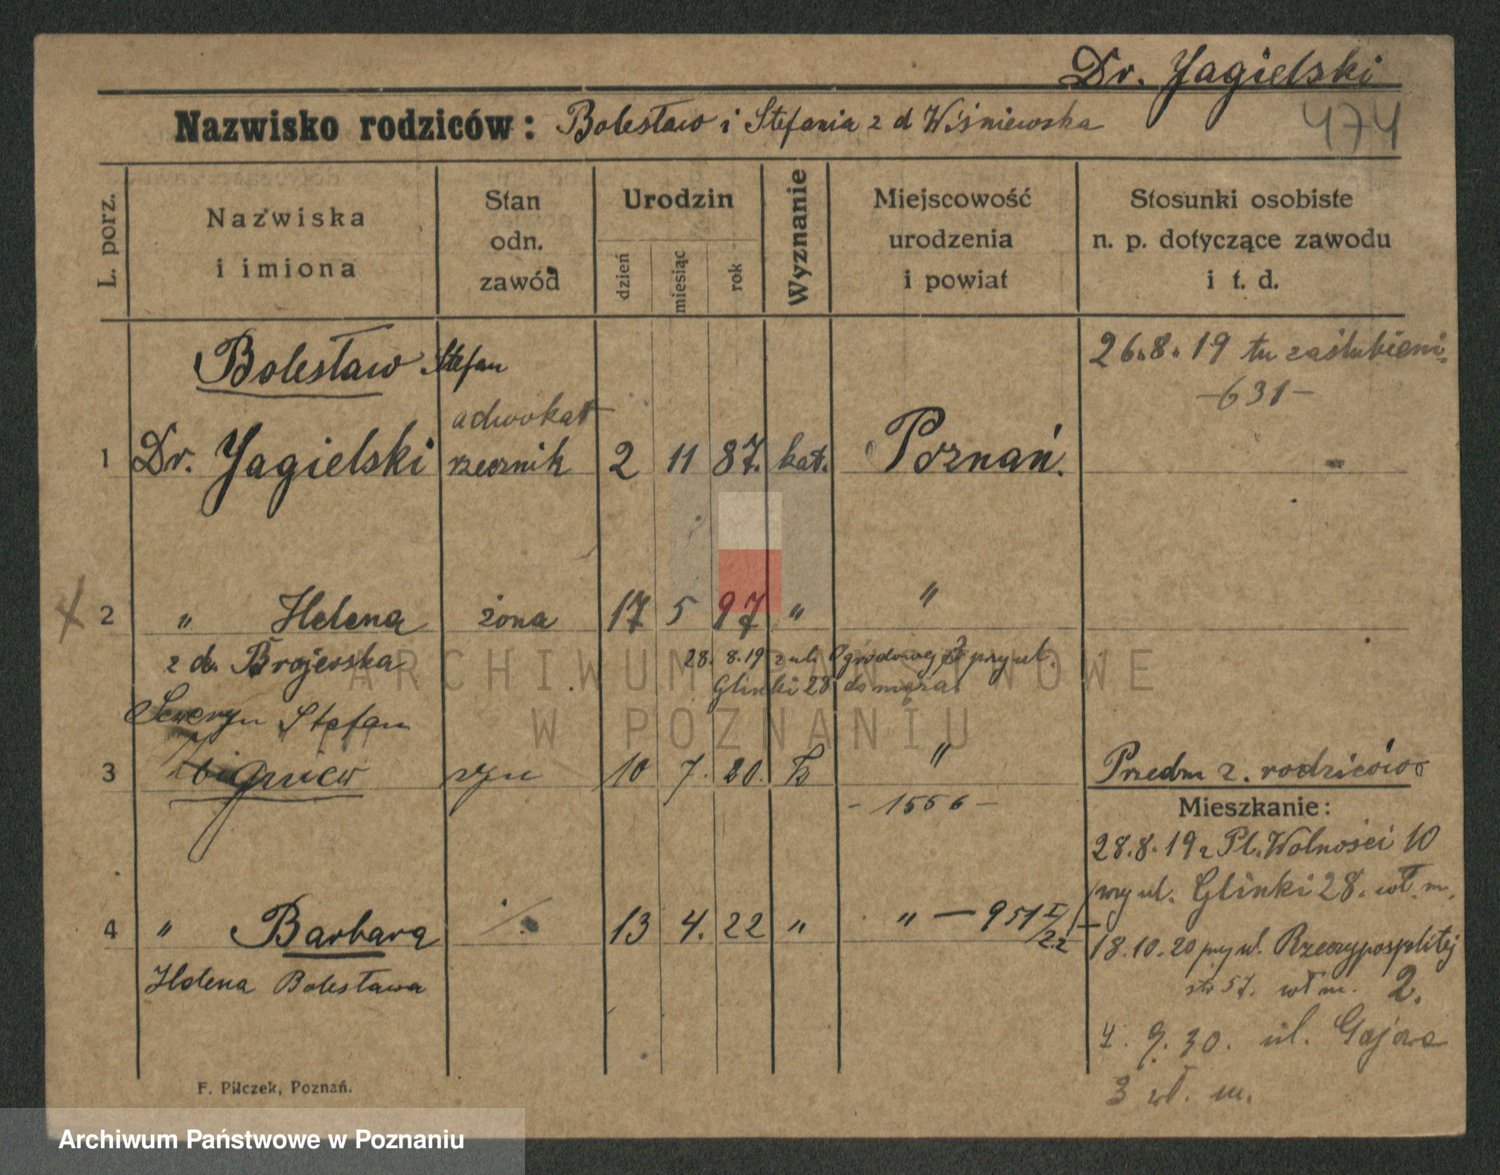 Dr. Jagielski
Nazwisko rodziców: Bolesław i Stefania z d Wiśniewska
474
L. porz.
Nazwiska
i imiona
Stan
odn.
zawód
Urodzin
dzień
miesiąc
rok
Wyznanie
Miejscowość
urodzenia
i powiat
Stosunki osobiste
n. p. dotyczące zawodu
i t. d.
Bolesław Stefan
26.8.19 tu zaślubieni
-631-
adwokat
1 Dr. Jagielski rzecznik 2 11 87. kat. Poznań.
2 " Helena żona 17 5 97 " "
z d. Brojerska
28. 8.19 z ul. Ogrodowej 3 przy ul.
Glinki 28 do męża.
Seweryn Stefan
3 Zbigniew syn 10 7. 20. k "
- 1556 -
Przedm z. rodziców
Mieszkanie:
28.8.19 z Pl. Wolności 10
przy ul. Glinki 28. wł. m.
4 " Barbara 13 4. 22 " " - 951 I/22
Helena Bolesława
18.10.20 przy ul. Rzeczypospolitej
str 57. wł m. 2.
4. 9. 30. ul. Gajowa
3 wł. m.
F. Pilczek, Poznań.
ARCHIWUM PAŃSTWOWE
W POZNANIU
Archiwum Państwowe w Poznaniu